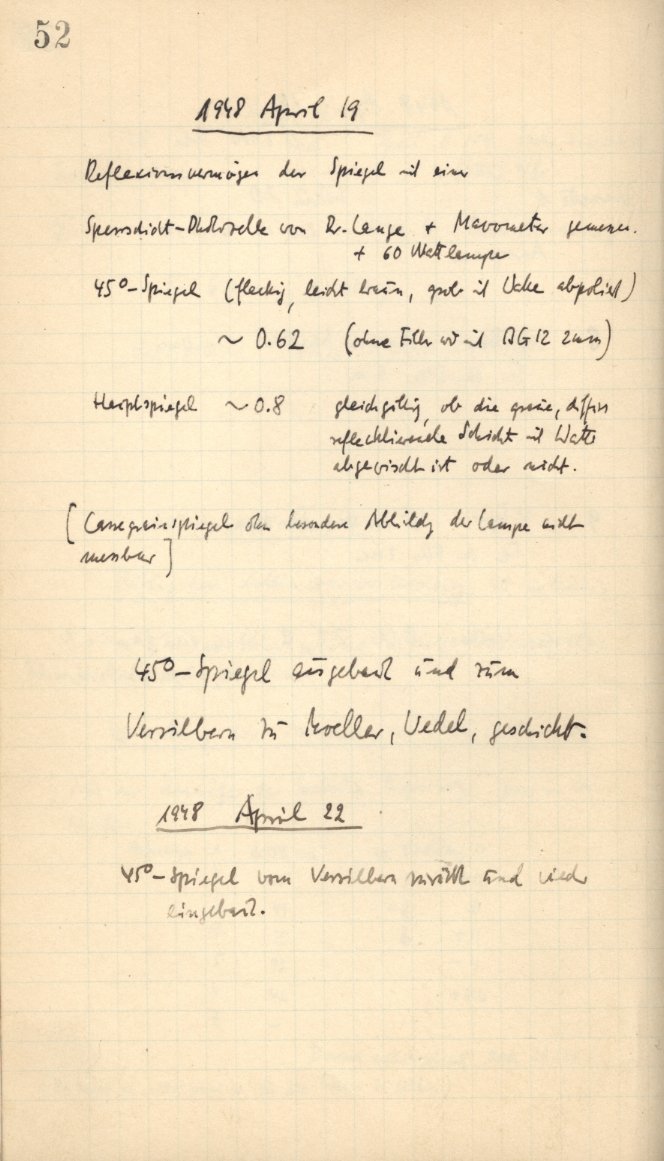 52
1948 April 19
Reflexionsvermögen der Spiegel mit einer
Sperrschicht-Photozelle von Dr. Lange + Mavometer gemessen.
+ 60 Wattlampe
45°-Spiegel (fleckig, leicht braun, grob mit Watte abpoliert)
~ 0.62 (ohne Filter wie mit BG12 2mm)
Hauptspiegel ~ 0.8 gleichgültig, ob die graue, diffus
reflektierende Schicht mit Watte
abgewischt ist oder nicht.
[Cassegrainspiegel ohne besondere Abbildg der Lampe nicht
messbar]
45°-Spiegel ausgebaut und zum
Versilbern zu Moeller, Wedel, geschickt.
1948 April 22
45°-Spiegel vom Versilbern zurück und wieder
eingebaut.